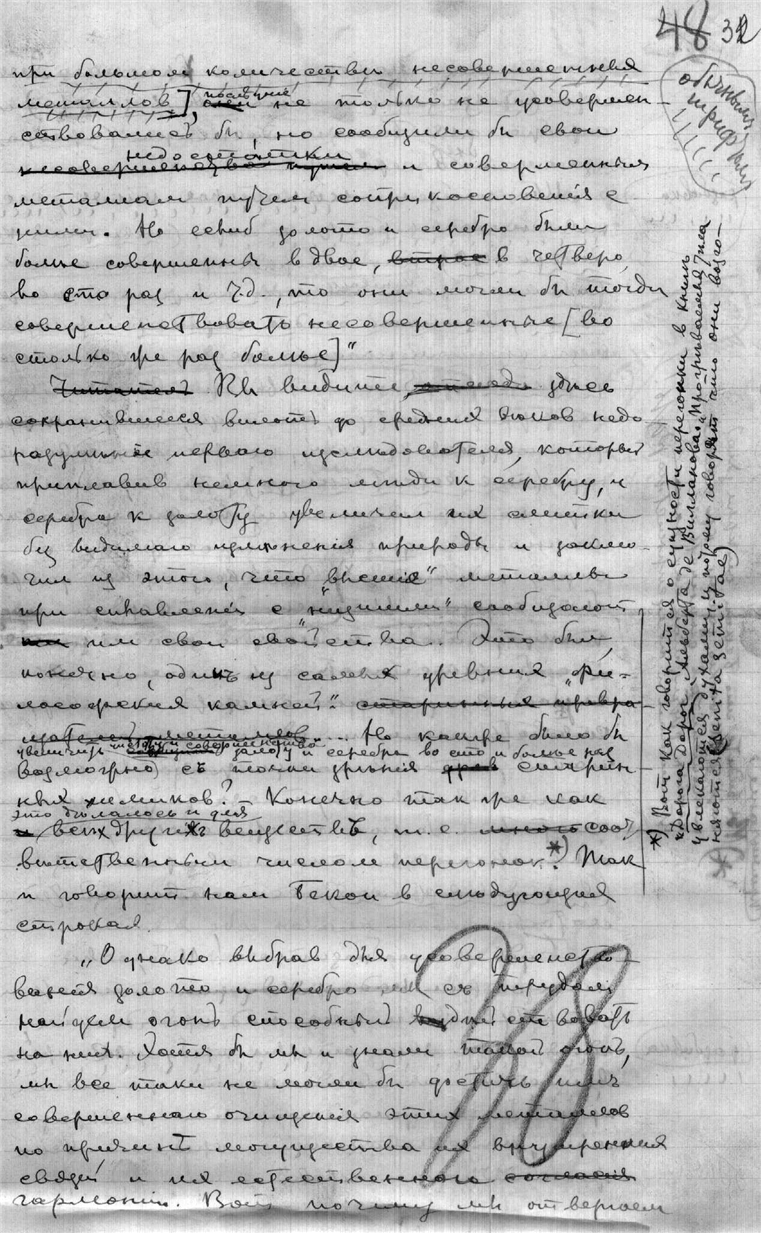 48 32
при большом количестве несовершенных
металлов], последние не только не усовершен-
ствовались бы, но сообщили бы свои
недостатки и совершенным
металлам путем соприкосновения с
ними. Но если б золото и серебро были
более совершенны вдвое, втрое в четверо,
во сто раз и т.д., то они могли бы тогда
совершенствовать несовершенные [во
столько же раз более]"
Читатель Вы видите, здесь
сохранившееся вплоть до средних веков недо-
разумение первого исследователя, который
приплавив немного меди к серебру, и
серебра к золоту увеличил их слитки
без видимаго изменения природы и заклю-
чил из этого, что "высшие" металлы
при сплавлении с "низшими" сообщают
им свои свойства. Это был,
конечно, один из самых древних "Фи-
лософских камней".
Но какже было бы
увеличить чистоту и совершенство золота и серебра во сто и более раз
возможно с точки зрения старин-
ных химиков? – Конечно так же как
это делалось и для
всех других веществ, т.е. соот-
ветственным числом перегонок.*) Так
и говорит нам Бекон в следующих
строках.
"Однако выбрав для усовершенство-
вания золото и серебро мы с трудом
найдем огонь способный действовать
на них. Хотя бы мы и знали такой огонь,
мы все таки не могли бы достичь
совершенного очищения этих металлов
по причине могущества их внутренних
связей и их естественного согласия
гармонии. Вот почему мы отвергаем
обычным
шрифтом
*) Вот как говорится о сущности перегонки в книге
"Дорога Дорог" Альберта де Виллановы: "Прогреваемые тела
увлекаются духами, и потому говорят что они возго-
няются